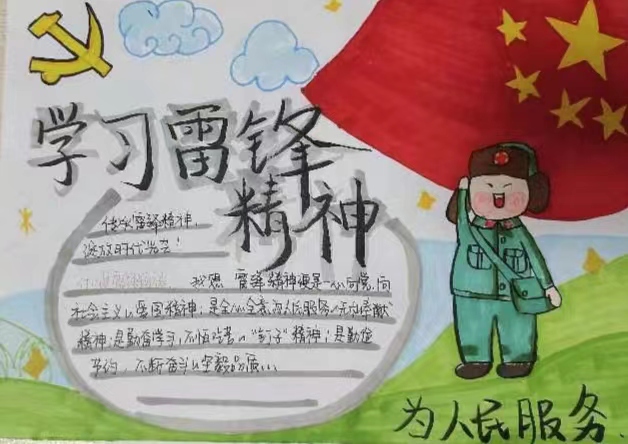 学习雷锋
精神
传承雷锋精神,
绽放时代光芒!
我想,雷锋精神便是一心向党、向
社会主义的爱国精神;是全心全意为人民服务的无私奉献
精神;是勤奋学习、不怕吃苦的“钉子”精神;是勤俭
节约、不断奋斗的坚毅品质...
为人民服务